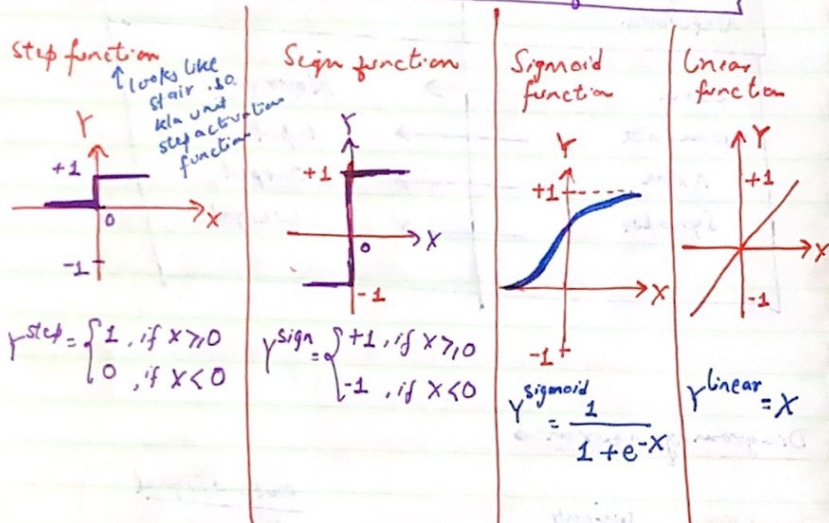 step function
↑ looks like
stair so
k/a unit
step activation
function
Y
+1
0
X
-1
Y^step = { 1, if X ≥ 0
0, if X < 0
Sign function
Y
+1
0
X
-1
Y^sign = { +1, if X ≥ 0
-1, if X < 0
Sigmoid
function
Y
+1
X
-1
Y^sigmoid = 1
1 + e^-X
linear
function
Y
+1
X
-1
Y^linear = X